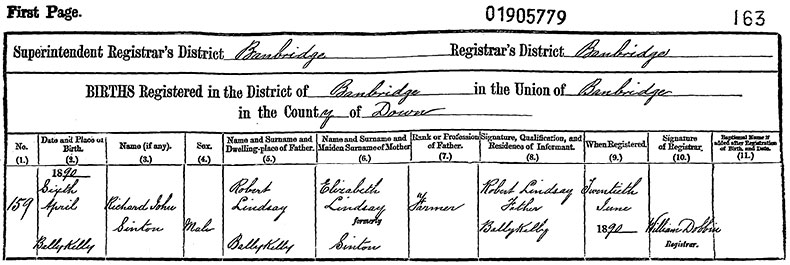 First Page.
01905779
163
Superintendent Registrar's District Banbridge Registrar's District Banbridge
BIRTHS Registered in the District of Banbridge in the Union of Banbridge
in the County of Down
No.
(1.)
Date and Place of
Birth.
(2.)
Name (if any).
(3.)
Sex.
(4.)
Name and Surname and
Dwelling-place of Father.
(5.)
Name and Surname and
Maiden Surname of Mother
(6.)
Rank or Profession
of Father.
(7.)
Signature, Qualification, and
Residence of Informant.
(8.)
When Registered.
(9.)
Signature
of Registrar.
(10.)
Baptismal Name if
added after Registration
of Birth, and Date.
(11.)
159
1890
Sixth
April
BallyKelly
Richard John
Sinton
Male
Robert
Lindsay
BallyKelly
Elizabeth
Lindsay
formerly
Sinton
Farmer
Robert Lindsay
Father
BallyKelly
Twentieth
June
1890
William Dobbin
Registrar.